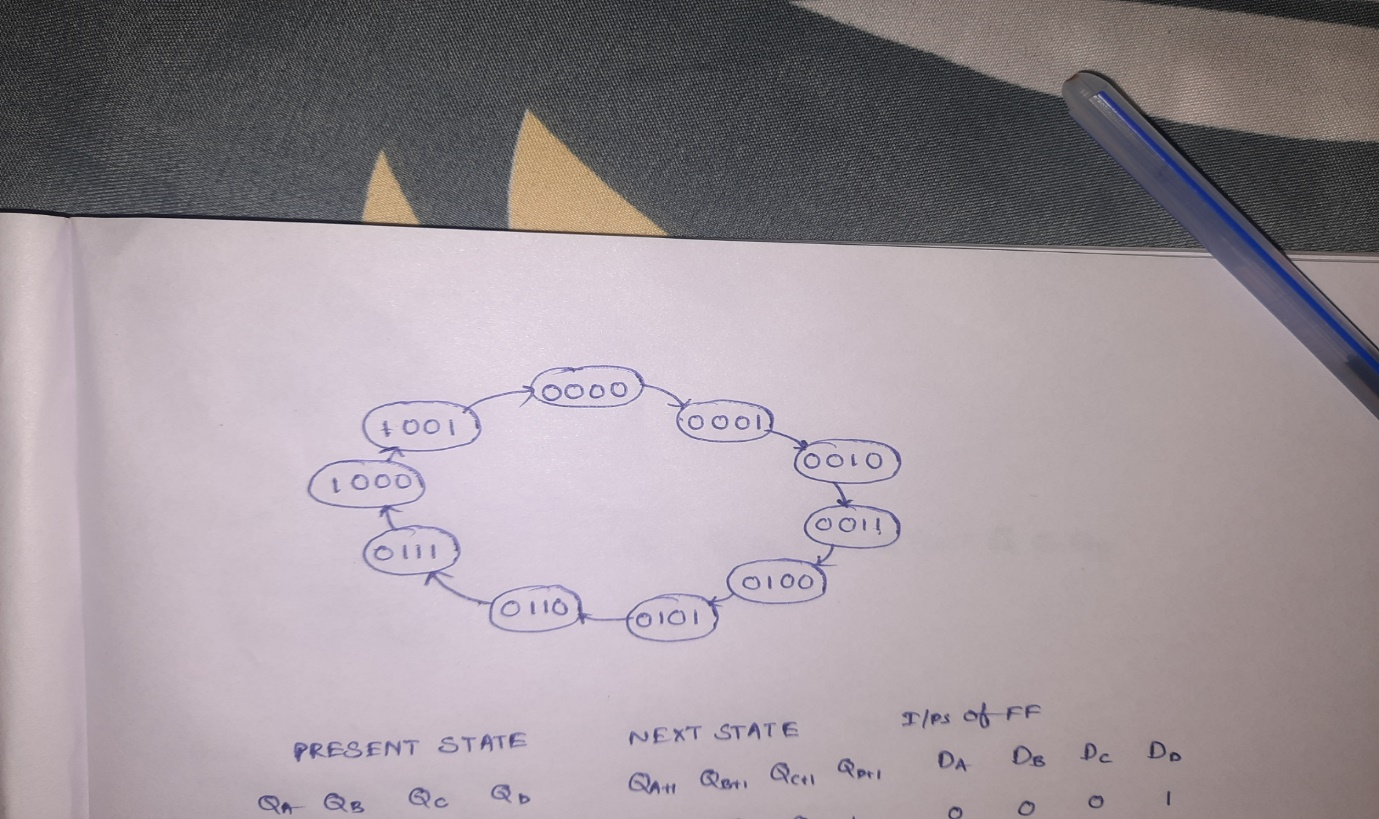 0000
1001
0001
0010
1000
0011
0111
0100
0110
0101
PRESENT STATE NEXT STATE I/Ps of FF
QA QB QC QD QA+1 QB+1 QC+1 QD+1 DA DB DC DD
0 0 0 1